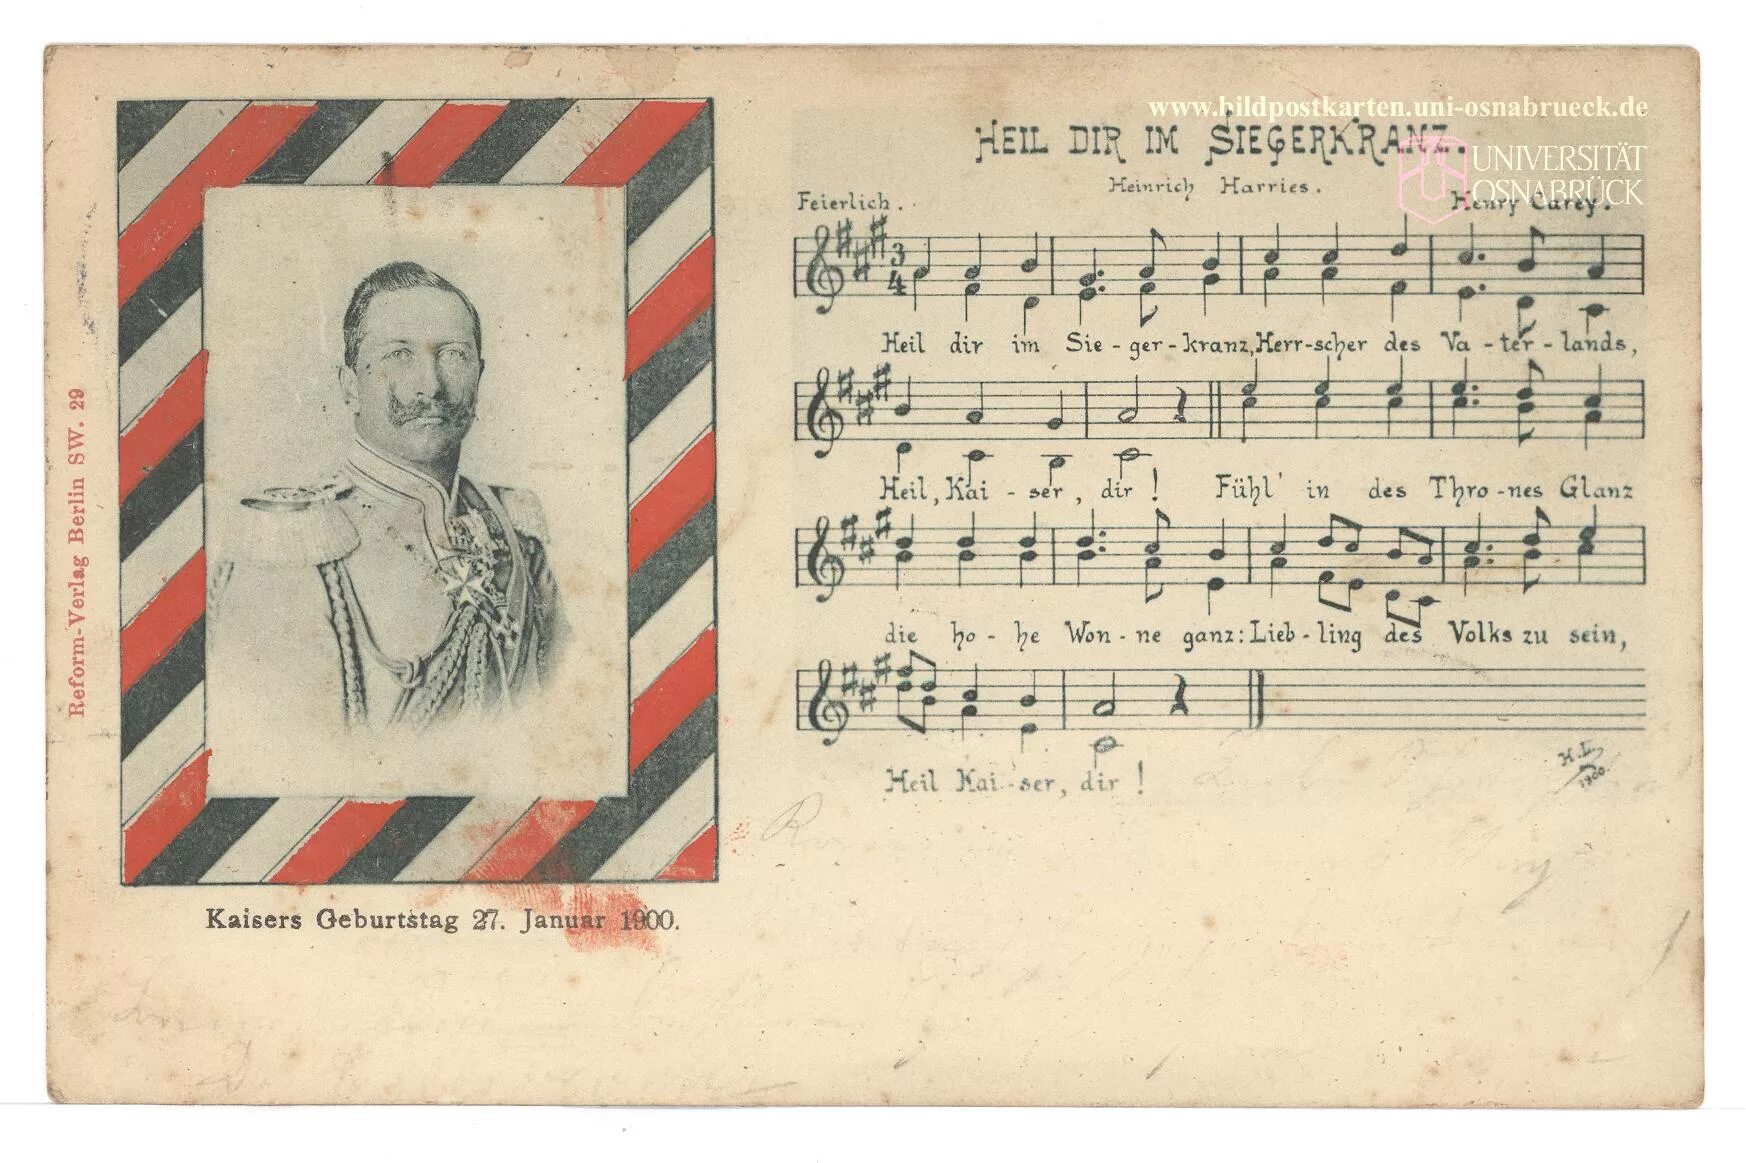 www.bildpostkarten.uni-osnabrueck.de
UNIVERSITÄT
OSNABRÜCK
Reform-Verlag Berlin SW. 29
Kaisers Geburtstag 27. Januar 1900.
HEIL DIR IM SIEGERKRANZ.
Heinrich Harries.
Feierlich.
Henry Carey.
3
4
Heil dir im Sie-ger-kranz, Herr-scher des Va-ter-lands,
Heil, Kai-ser, dir! Fühl' in des Thro-nes Glanz
die ho-he Won-ne ganz: Lieb-ling des Volks zu sein,
Heil Kai-ser, dir!
H.L.
1900.